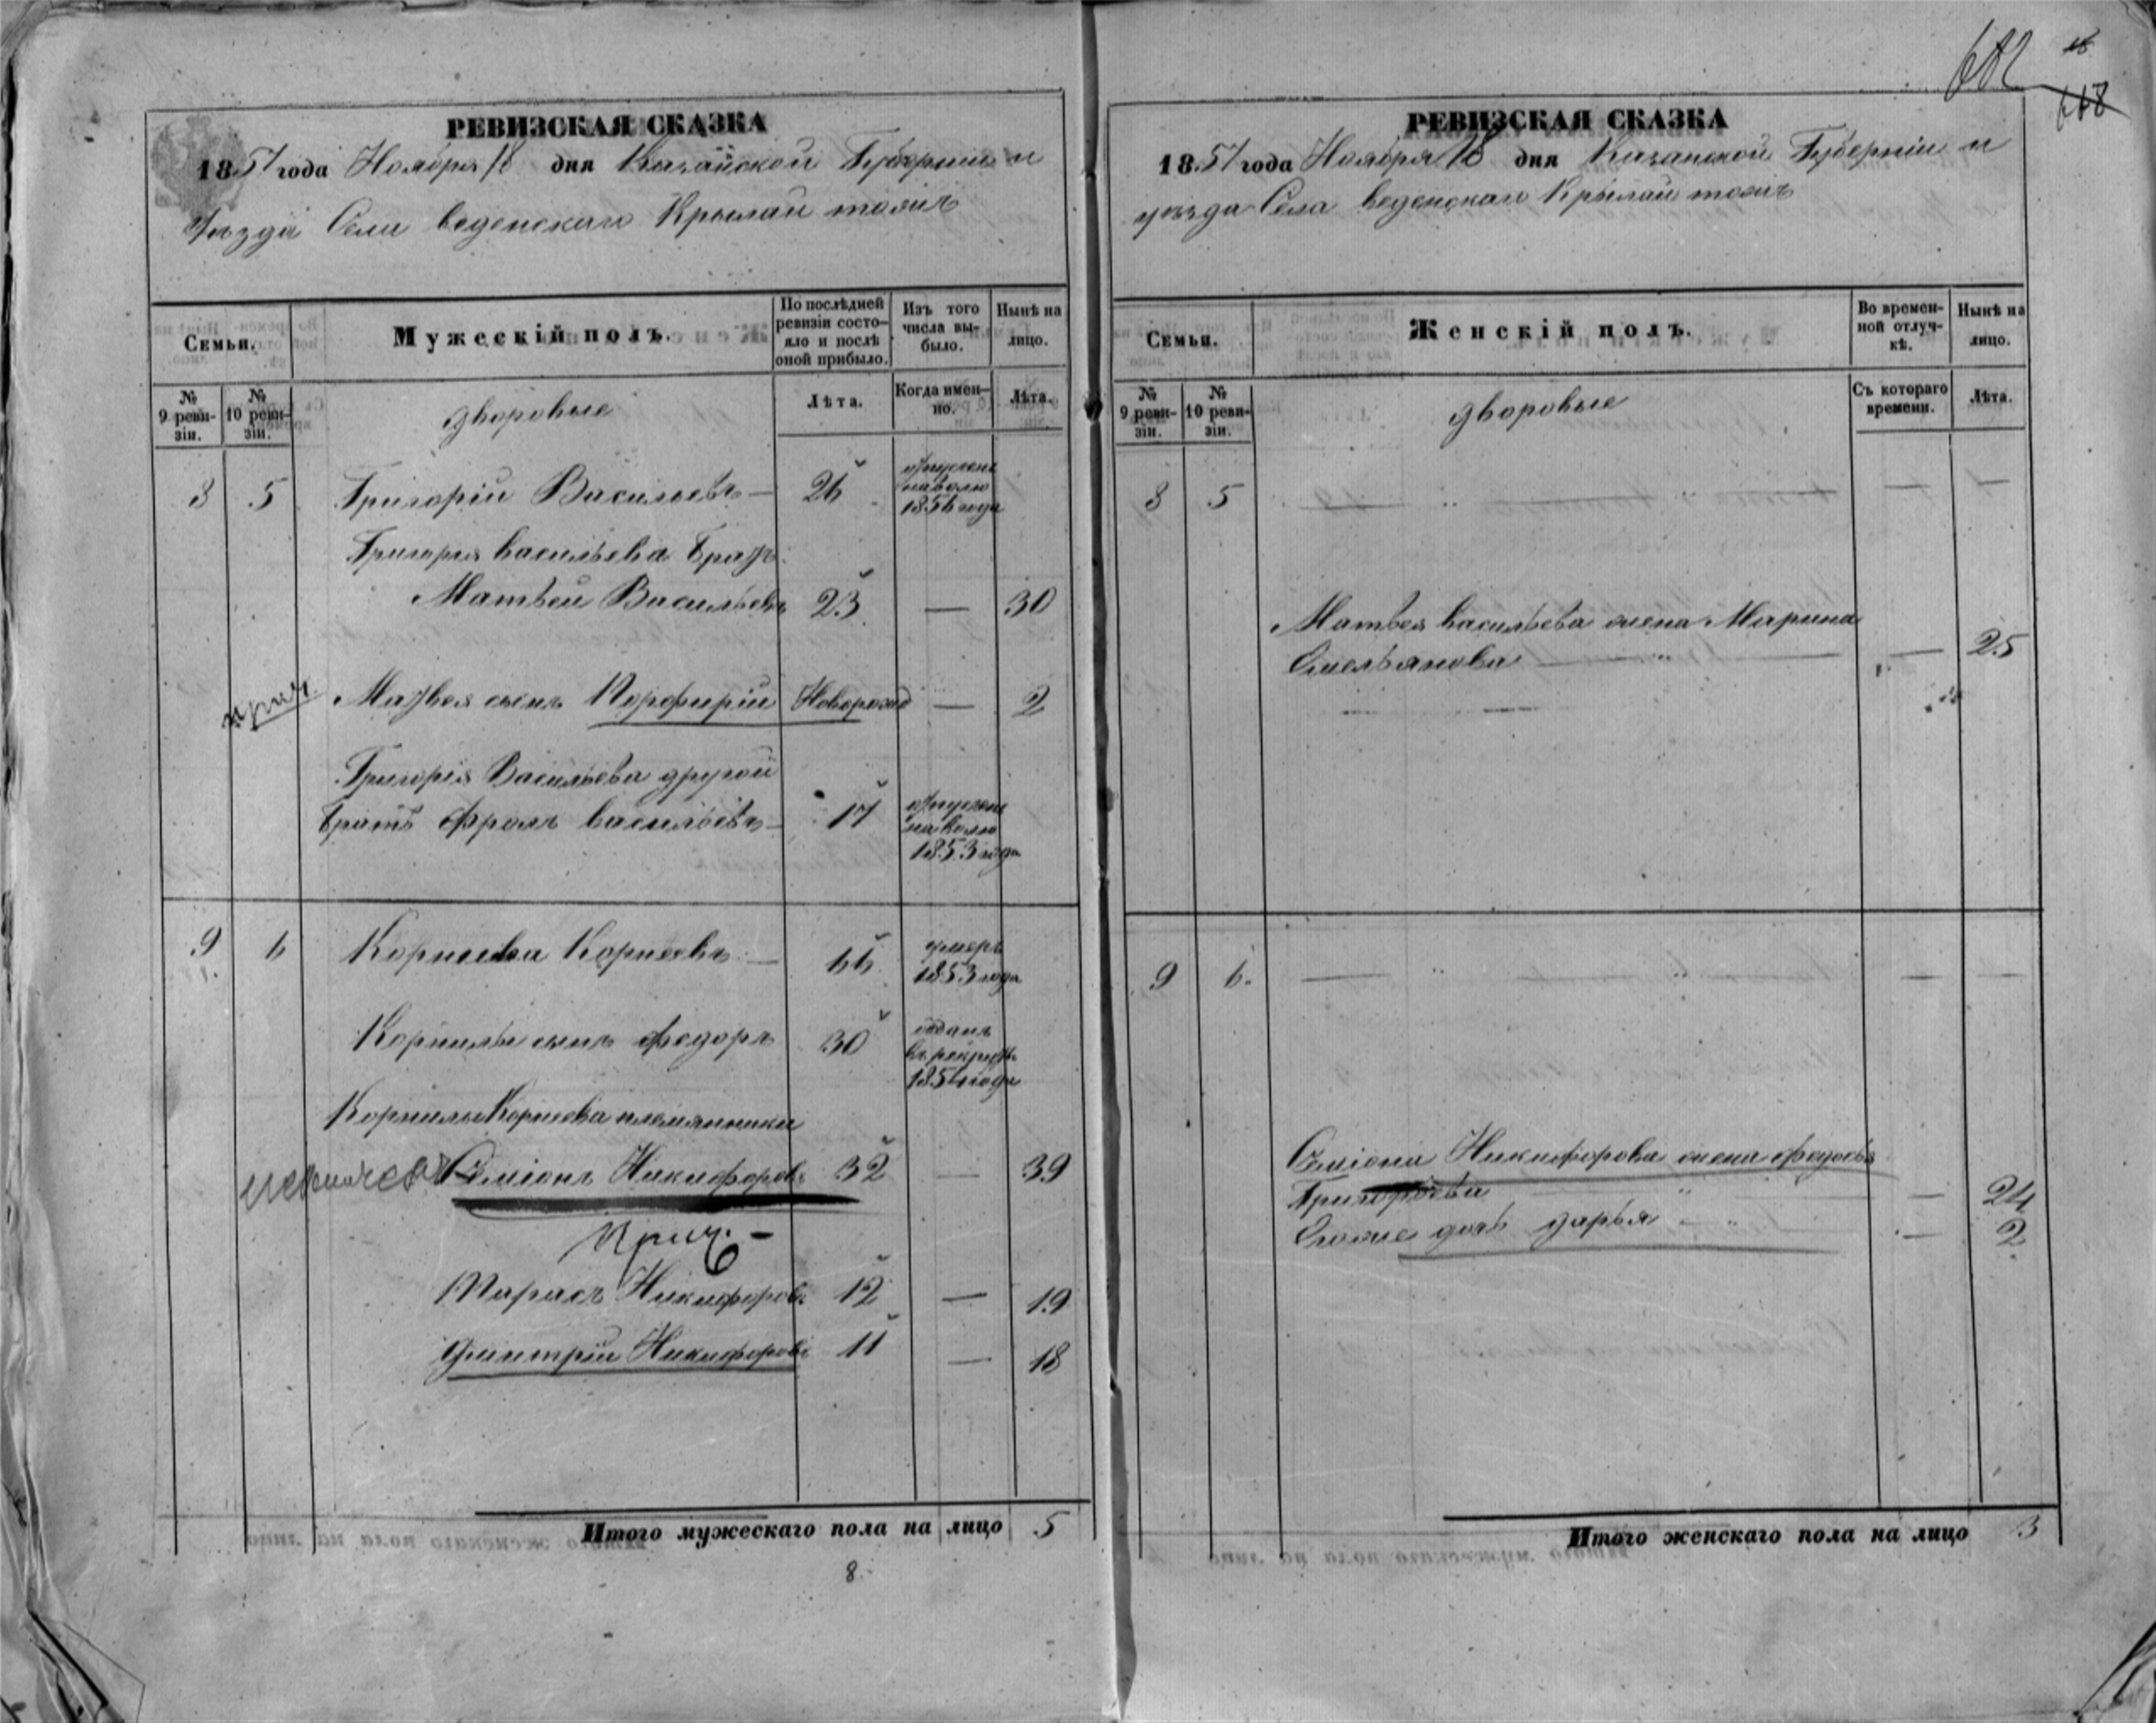 РЕВИЗСКАЯ СКАЗКА
1857 года Ноября 18 дня Казанской Губернии и
Уезда Села веденскаго Крылай тожъ
Семьи.
Мужескій полъ.
По послѣдней ревизіи состояло и послѣ оной прибыло.
Изъ того числа выбыло.
Нынѣ на лицо.
№ 9 ревизіи.
№ 10 ревизіи.
дворовые
Лѣта.
Когда именно.
Лѣта.
8 5 Григорій Васильевъ — 26 отпущенъ на волю 1856 года
Григорья васильева братъ
Матвей Васильевъ 23 — 30
Матвея сынъ Порфирій Новорожд — 2
Григорія Васильева другой
братъ Фролъ васильевъ — 17 отпущенъ на волю 1853 года
9 6 Корнила Корнеевъ — 66 умеръ 1853 года
Корнилы сынъ федоръ 30 отданъ въ рекруты 1854 года
Корнилы Корнеева племянники
Семіонъ Никифоровъ 32 — 39
Тарасъ Никифоровъ 12 — 19
Дмитрій Никифоровъ 11 — 18
Итого мужескаго пола на лицо 5
8
682
668
РЕВИЗСКАЯ СКАЗКА
1857 года Ноября 18 дня Казанской Губерніи и
уѣзда Села веденскаго Крылай тожъ
Семьи.
Женскій полъ.
Во временной отлучкѣ.
Нынѣ на лицо.
№ 9 ревизіи.
№ 10 ревизіи.
дворовые
Съ котораго времени.
Лѣта.
8 5 — " — — —
Матвея васильева жена Марина
Омельянова — " — — 25
9 6. — " — — —
Семіона Никифорова жена федосья
Григорьева " — 24
Оноже дочь дарья — " — — 2
Итого женскаго пола на лицо 3